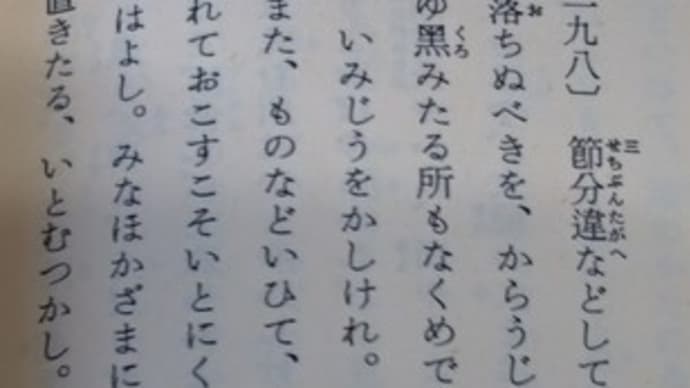 一九八〕 節分違などして
落ちぬべきを、からうじ
ゆ黒みたる所もなくめで
いみじうをかしけれ。
また、ものなどいひて、
れておこすこそいとにく
はよし。みなほかざまに
置きたる、いとむつかし。